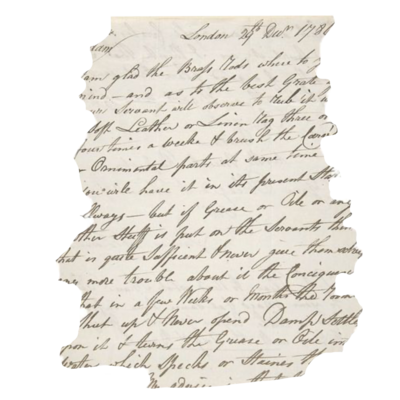 London 29th Decr. 178
am glad the Brass Rods where to
ind - and as to the best Grate
Servant will observe to Rub it
Soft Leather or Linen Rag three or
four times a weeke & brush the
- Ornimental parts at same time
you will have it in its present
Always - but if Grease or Oile or any
ther Stuff is put on the Servants
hat is quite Suffient & never give themselves
more trouble about it the
hat in a few Weeks or Months the Room
Shut up & Never opend Damp Settle
on it & turns the Grease or Oile in
which Specks or Staines